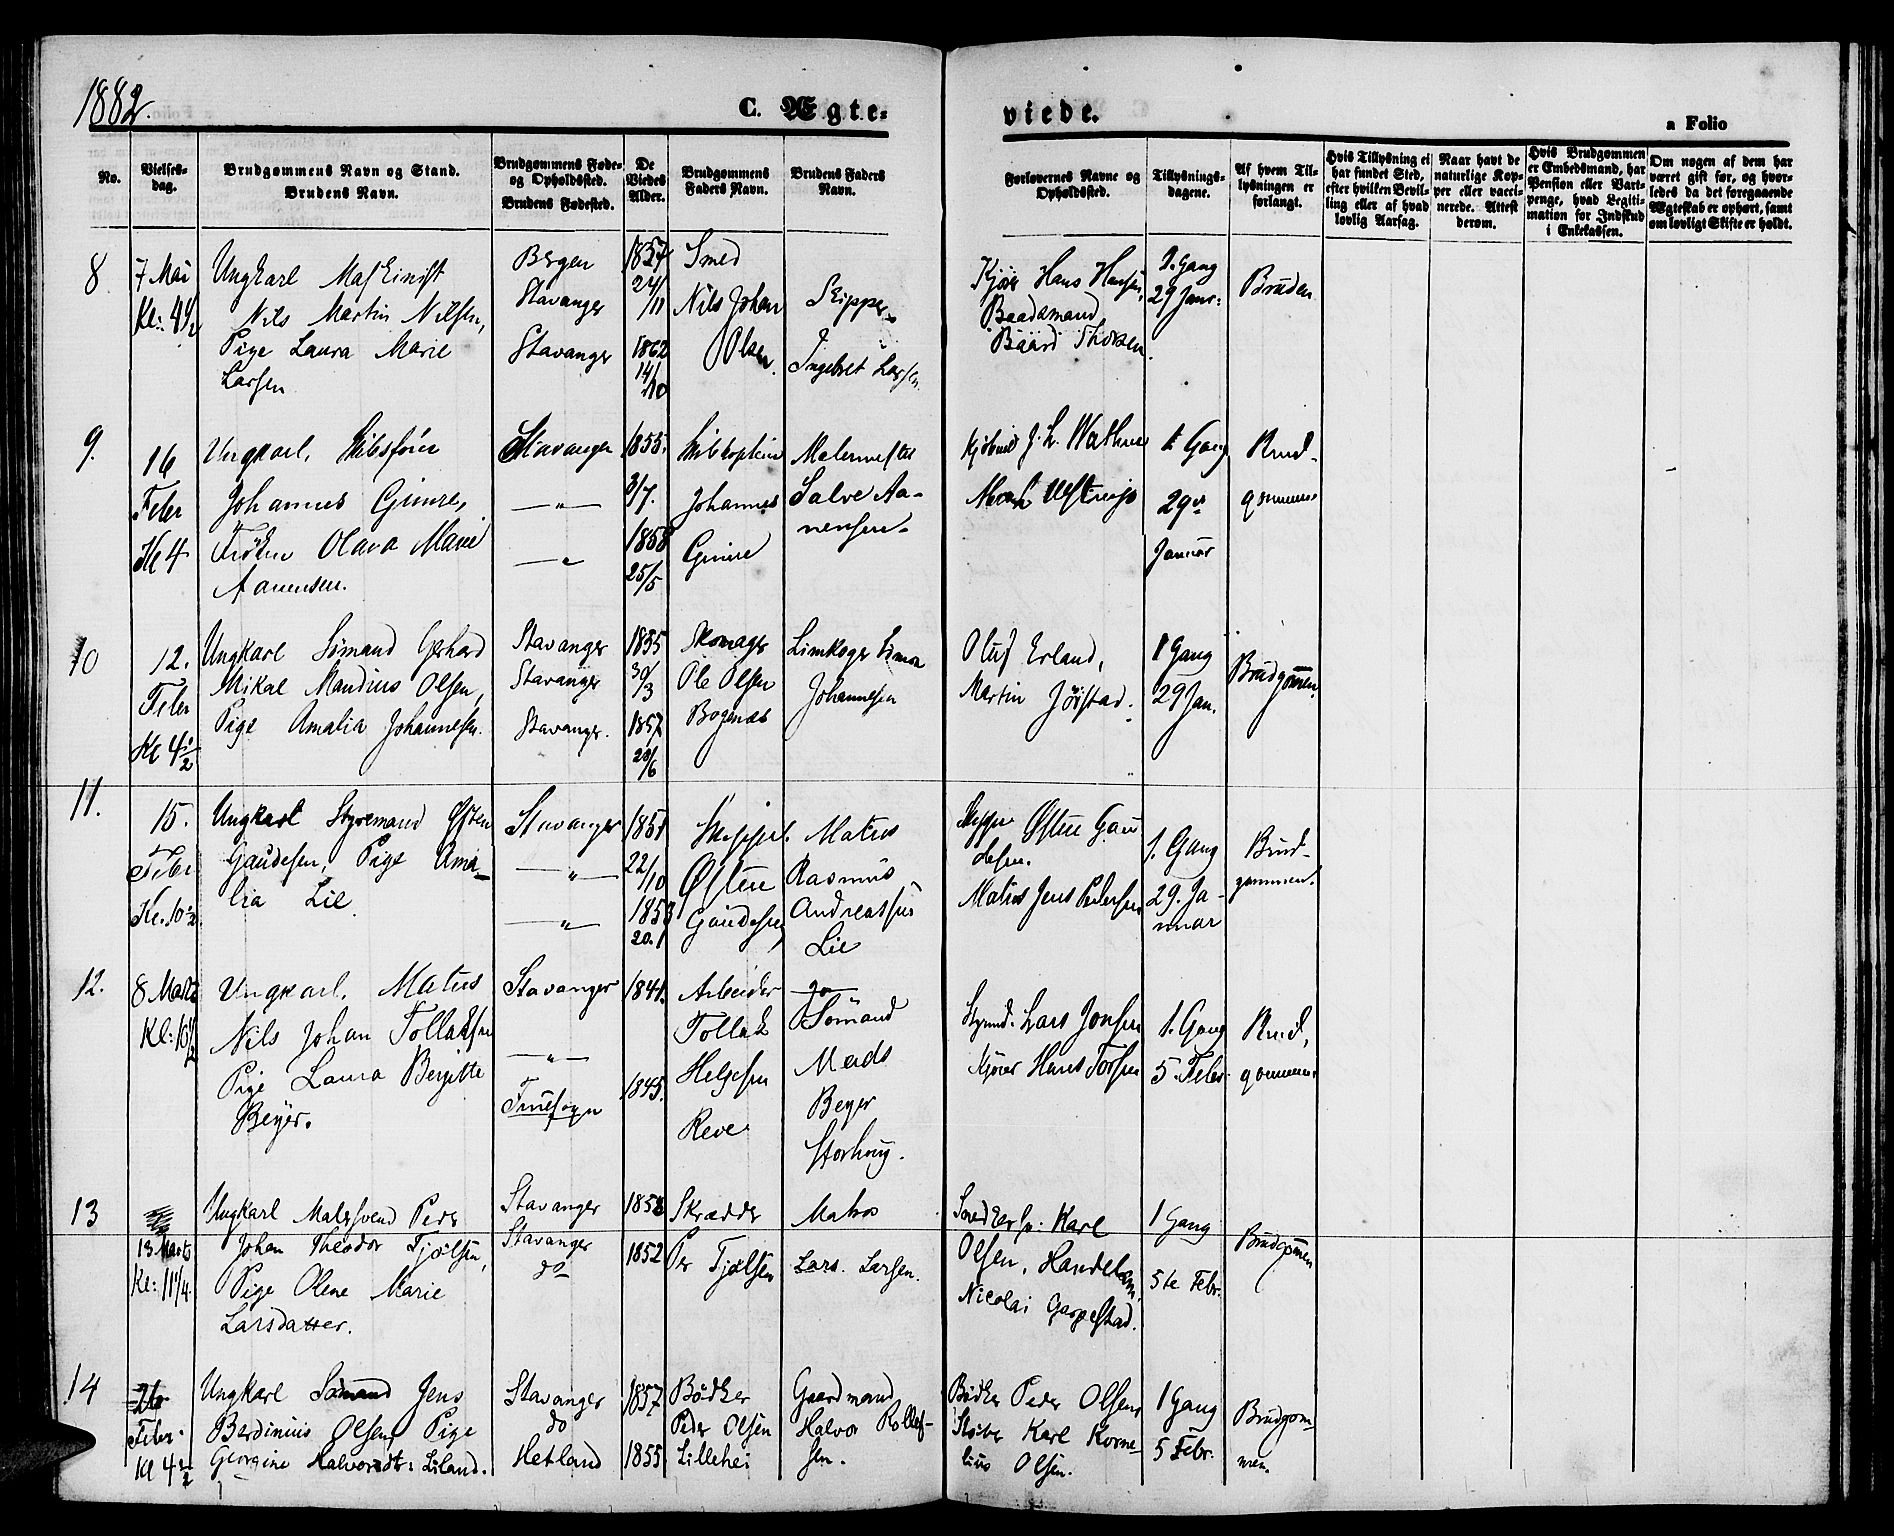 1882.
C. Ægte-
viede.
a Folio
No.
Vielses-
dag.
Brudgommens Navn og Stand.
Brudens Navn.
Brudgommens Føde-
og Opholdssted.
Brudens Fødested.
De
Viedes
Alder.
Brudgommens
Faders Navn.
Brudens Faders
Navn.
Forlovernes Navne og
Opholdssted.
Tillysnings-
dagene.
Af hvem Til-
lysningen er
forlangt.
Hvis Tillysning ei
har fundet Sted,
efter hvilken Bevil-
ling eller af hvad
lovlig Aarsag.
Naar havt de
naturlige Kop-
per eller vacci-
nerede. Attest
derom.
Hvis Brudgommen
er Embedsmand, har
Pension eller Vart-
penge, hvad Legiti-
mation for Indskud
i Enkekassen.
Om nogen af dem har
været gift før, og hvor-
ledes da det foregaaende
Ægteskab er ophørt, samt
om lovligt Skifte er holdt.
8
7 Mai
Kl: 4 1/2
Ungkarl Maskinist
Nils Martin Nilsen,
Pige Laura Marie
Larsen
Bergen
Stavanger
Stavanger
1857
24/
11
1862
14/
10
Smed
Nils Johan
Olsen
Skipper
Ingebret Larsen
Kjør Hans Hansen,
Baadsmand
Baard Thorsen.
1. Gang
29 Janr:
Bruden
9.
16
Febr
Kl 4
Ungkarl, Skibsfører
Johannes Gimre,
Frøken Olava Marie
Aanensen.
Stavanger
— " —
— " —
1855.
3/7.
1858
25/5
Skibskaptein
Johannes
Gimre
Malermester
Salve Aa-
nensen
J. L. Wathne
1 Gang
29de
Januar
Brud-
gommen
10
12.
Febr
Kl 4 1/2
Ungkarl Sømand Gerhard
Mikal Mandius Olsen,
Pige Amalia Johannesen.
Stavanger
Stavanger
Stavanger.
1855
30/
3
1857
28/
6
Skomager
Ole Olsen
Bogenæs
Limkoger Simon
Johannesen
Oluf Erland,
Martin Jøstad.
1 Gang
29 Jan.
Brudgommen
11.
15.
Febr
Kl. 10 1/2
Ungkarl Styrmand Østen
Gaudesen, Pige Ama-
lia Lie
Stavanger
— " —
— " —
1851
22/
10
1853
20.1
Skipper.
Østen
Gaudesen
Matros
Rasmus
Andreassen
Lie
Skipper Østen Gau
desen.
Matros Jens Pedersen
1. Gang
29. Ja-
nuar
Brud-
gommen.
12.
8 Marts
Kl: 10 1/2
Ungkarl. Matros
Nils Johan Tollaksen
Pige Laura Bergitte
Beyer.
Stavanger
— " —
1841.
1845.
Arbeider
Tollak
Helgesen
Reve
Sømand
Mads
Beyer
Storhoug.
Styrmd. Lars Jonsen
Kjører Hans Torsen
1. Gang
5. Febr
Brud,
gommen
13
13 Marts
Kl: 11 1/4.
Ungkarl Malersvend Peder
Johan Theodor Tjølsen,
Pige Olene Marie
Larsdatter.
Stavanger
Stavanger
do
1858
1852
Skrædder
Per Tjølsen
Matros
Lars. Larsen.
Snedkersv: Karl
Olsen, Handelsm,
Nicolai Garpestad.
1 Gang
5te Febr.
Brudgommen
14
26
Febr.
Kl 4 1/2
Ungkarl Sømand Jens
Berdinius Olsen, Pige
Georgine Halvorsdtr. Liland.
Stavanger
do
Hetland
1857
1855
Bødker
Peder Olsen
Lillehei
Gaardmand
Halvor Rollef-
sen.
Bødker Peder Olsen,
Støber Karl Korne-
lius Olsen.
1 Gang
5 Febr.
Brudgom-
men.